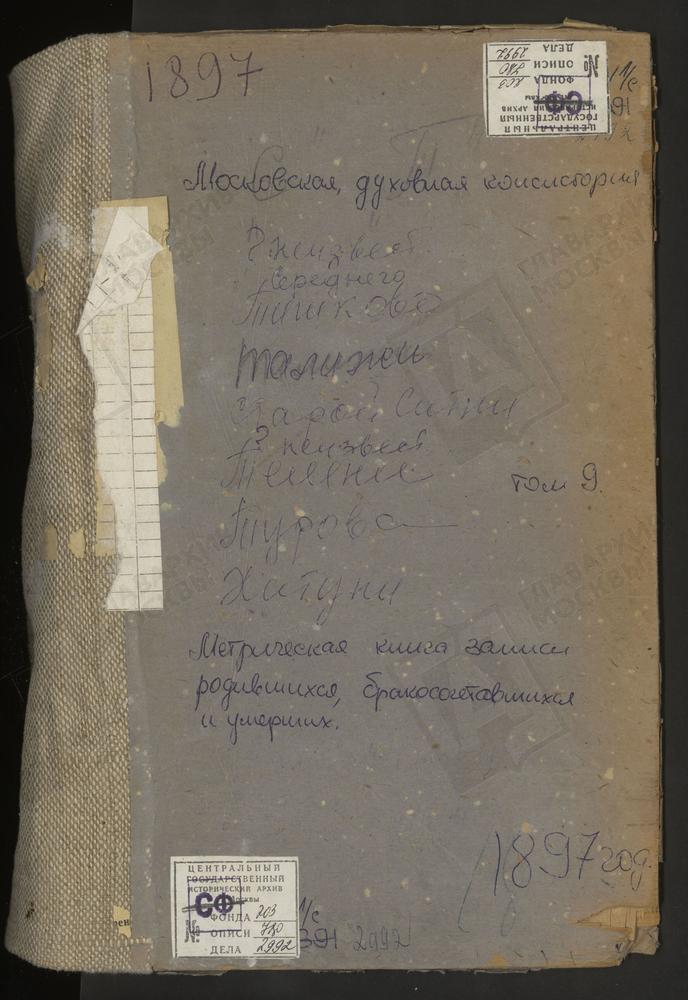 1897
ЦЕНТРАЛЬНЫЙ
ГОСУДАРСТВЕННЫЙ
ИСТОРИЧЕСКИЙ АРХИВ
МОСКВЫ
СФ
№ ФОНДА 203
ОПИСИ 780
ДЕЛА 2992
Московская духовная консистория
? неизвест.
Середнего
Тишково
Талижи
Старой Ситни
? неизвест
Теменю
том 9.
Турова
Хатуни
Метрическая книга записи
родившихся, бракосочетавшихся
и умерших.
1897 год.
ЦЕНТРАЛЬНЫЙ
ГОСУДАРСТВЕННЫЙ
ИСТОРИЧЕСКИЙ АРХИВ
Москвы
СФ
ФОНДА 203
№ ОПИСИ 780
ДЕЛА 2992
2992
ГЛАВАРХИВ
МОСКВЫ